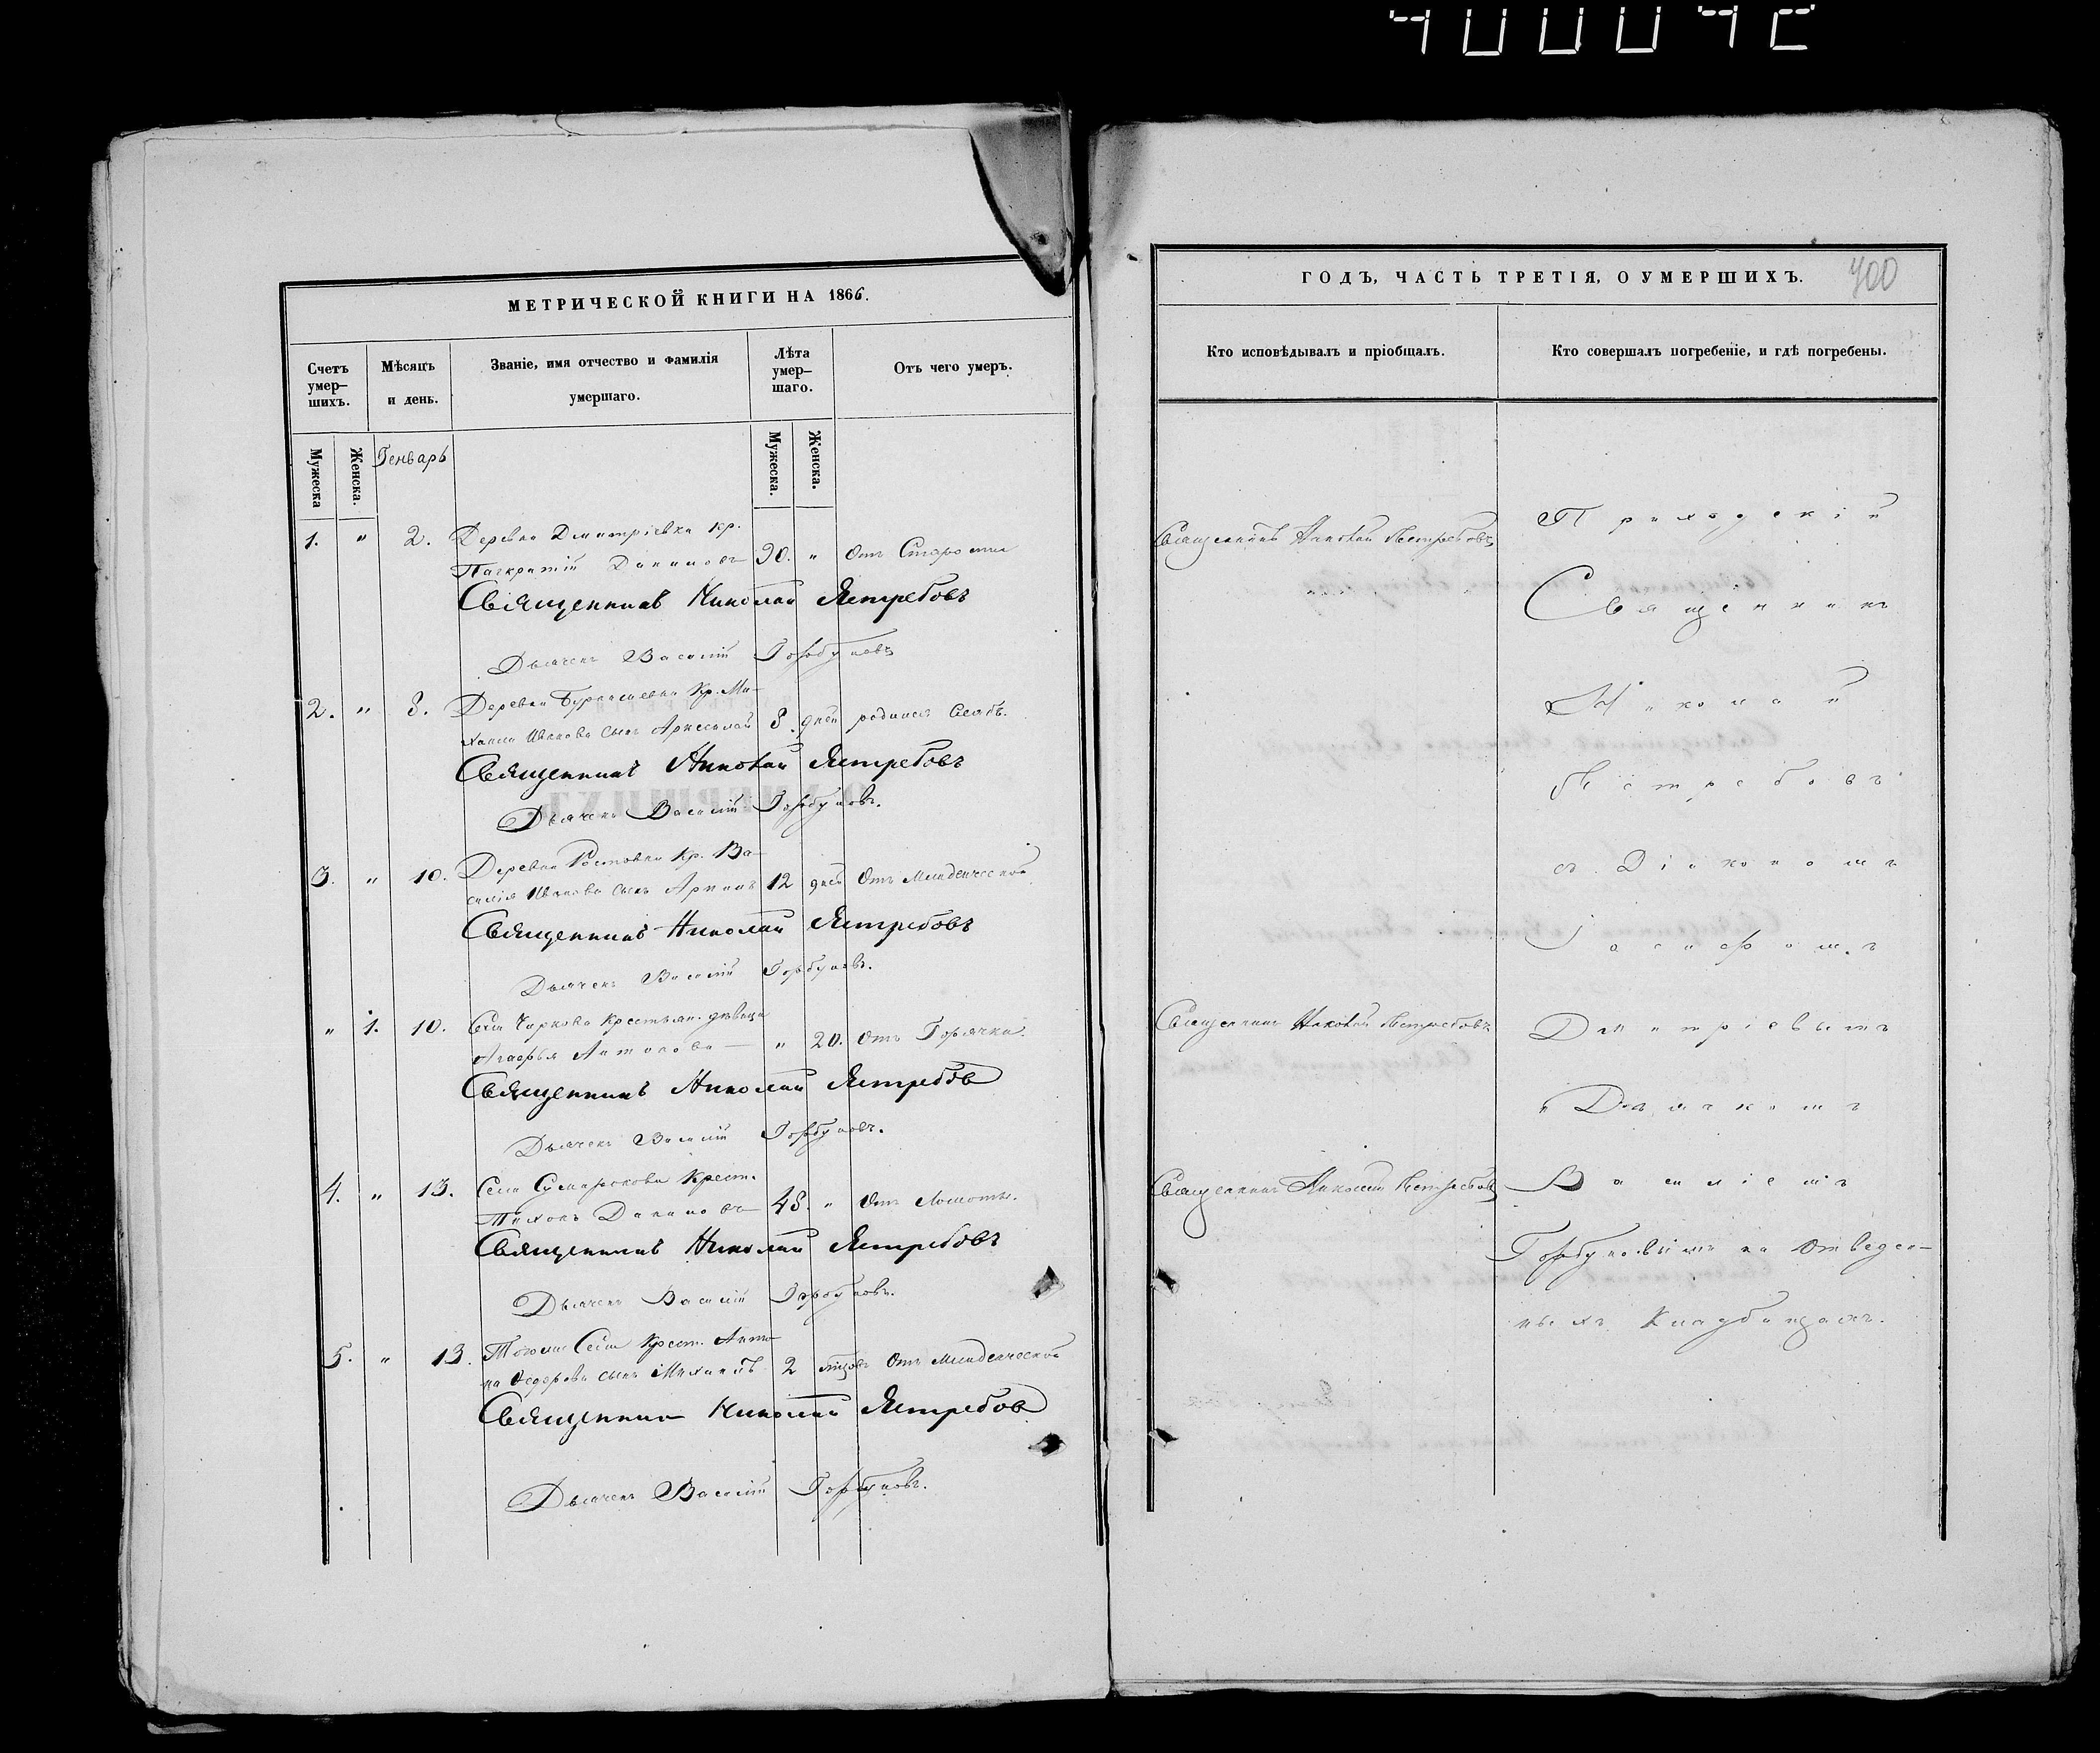 МЕТРИЧЕСКОЙ КНИГИ НА 1866.
Счетъ умер-шихъ.
Мѣсяцъ и день.
Званіе, имя отчество и фамилія умершаго.
Лѣта умер-шаго.
Отъ чего умеръ.
Мужеска
Женска.
Генварь
Мужеска.
Женска.
1. " 2. Деревни Димитріевки кр.
Панкратій Даниловъ 90. " Отъ Старости
Священникъ Николай Ястребовъ
Дьячекъ Василій Горбуновъ
2. " 8. Деревни Кр. Ми-
хаила Иванова сынъ 8. дней родился Слабъ.
Священникъ Николай Ястребовъ
Дьячекъ Василій Горбуновъ.
3. " 10. Деревни Ростовки Кр. Ва-
силія Иванова сынъ 12 дней Отъ Младенческой
Священникъ Николай Ястребовъ
Дьячекъ Василій Горбуновъ.
" 1. 10. Села Чиркова Крестьян. дѣвица
Агафья Антонова " 20. Отъ Горячки.
Священникъ Николай Ястребов
Дьячекъ Василій Горбуновъ.
4. " 13. Села Сумарокова Крест.
Тихонъ Даниловъ 48. " Отъ Ломоты.
Священникъ Николай Ястребовъ
Дьячекъ Василій Горбуновъ.
5. " 13. Тогожъ Села Крест. Анто-
на Ѳедорова сынъ Михаилъ 2 Отъ Младенческой
Священник Николай Ястребов
Дьячекъ Василій Горбуновъ.
ГОДЪ, ЧАСТЬ ТРЕТІЯ, О УМЕРШИХЪ.
400
Кто исповѣдывалъ и пріобщалъ.
Кто совершалъ погребеніе, и гдѣ погребены.
Священникъ Николай Ястребовъ
Приходскій
Священникъ
Николай
Ястребовъ
съ Діакономъ
Іосифомъ
Священникъ Николай Ястребовъ
Димитріевымъ
и Дьячкомъ
Священникъ Николай Ястребовъ
Василіемъ
Горбуновымъ на Отведен-
ныхъ Кладбищахъ.